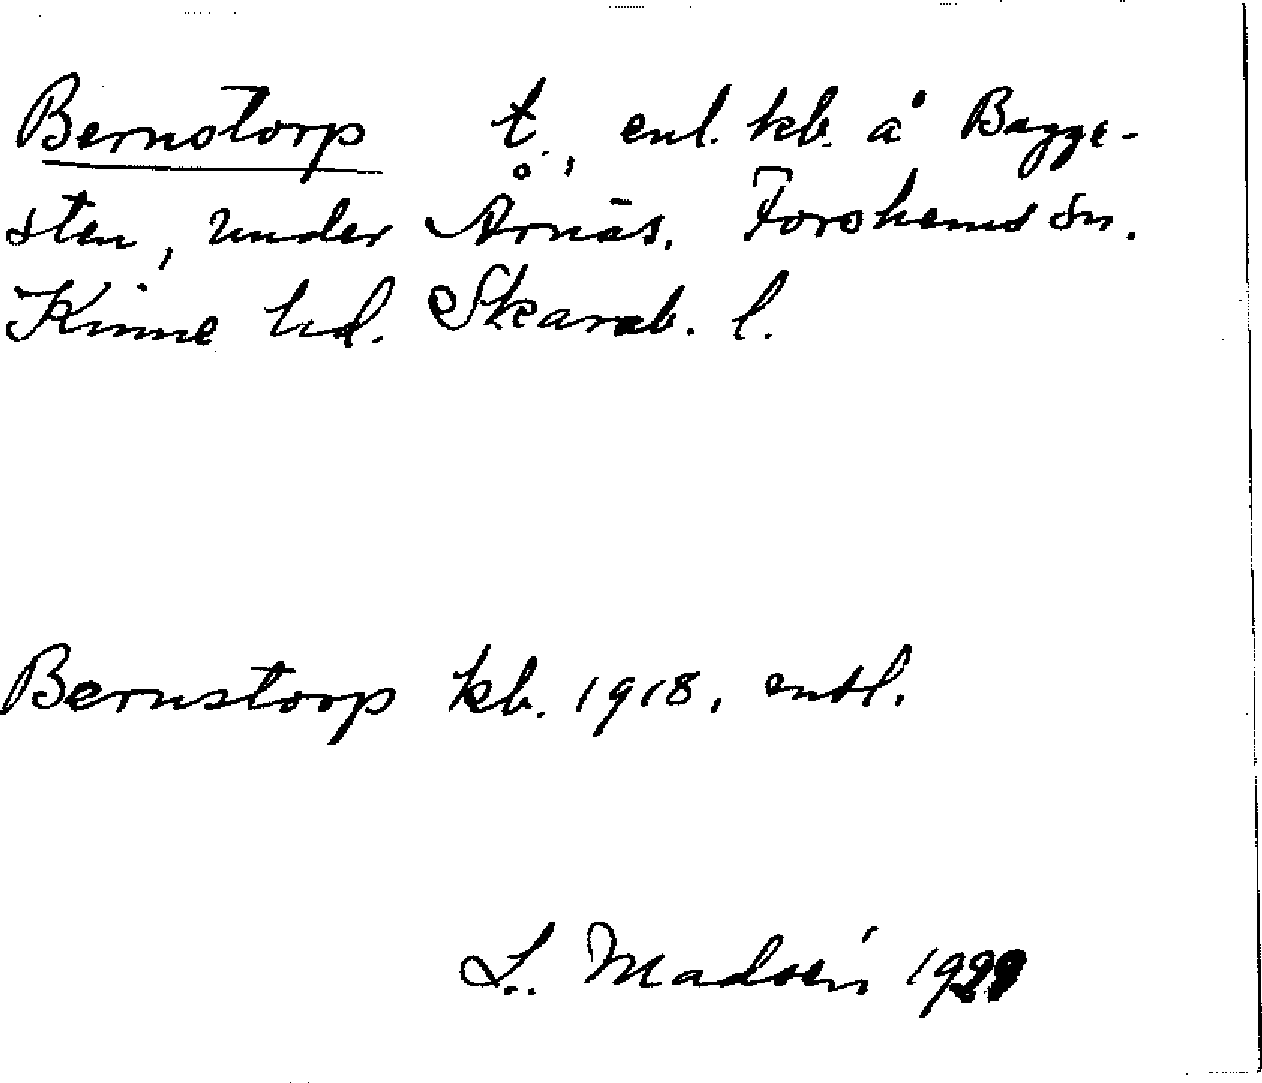 Bernstorp t., enl. kb. å Bagge-
sten, under Årnäs. Forshems sn.
Kinne hd. Skarab. l.
Bernstorp kb. 1918, enst.
L. Madsén